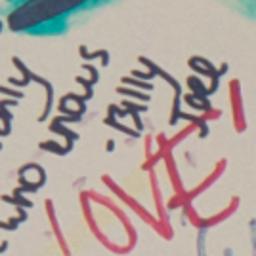 who knows
. Billy
Joel
LOVE!